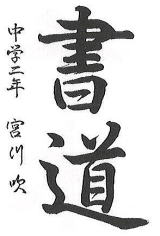 書道
中学二年 宮川吹